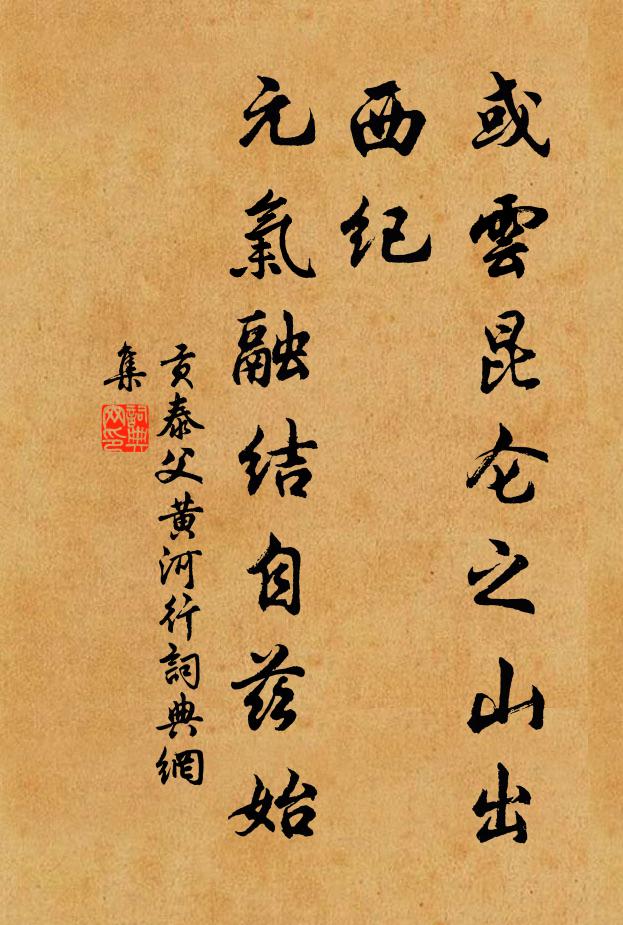 或雲昆仑之山出
西纪
元氣融结自茲始
贡泰父黄河行詞典網
集
詞典網印